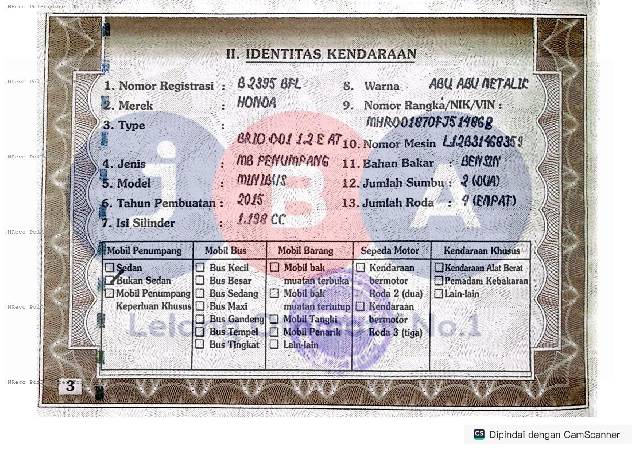 II. IDENTITAS KENDARAAN
1. Nomor Registrasi : B 2395 BFL
2. Merek : HONDA
3. Type :
BRIO DD1 1.2 E AT
4. Jenis : MB PENUMPANG
5. Model : MINIBUS
6. Tahun Pembuatan : 2015
7. Isi Silinder : 1.198 CC
8. Warna ABU ABU METALIK
9. Nomor Rangka/NIK/VIN :
MHRDD1870FJ514868
10. Nomor Mesin L12B31468359
11. Bahan Bakar : BENSIN
12. Jumlah Sumbu : 2 (DUA)
13. Jumlah Roda : 4 (EMPAT)
Mobil Penumpang
Sedan
Bukan Sedan
Mobil Penumpang
Keperluan Khusus
Mobil Bus
Bus Kecil
Bus Besar
Bus Sedang
Bus Maxi
Bus Gandeng
Bus Tempel
Bus Tingkat
Mobil Barang
Mobil bak
muatan terbuka
Mobil bak
muatan tertutup
Mobil Tangki
Mobil Penarik
Lain-lain
Sepeda Motor
Kendaraan
bermotor
Roda 2 (dua)
Kendaraan
bermotor
Roda 3 (tiga)
Kendaraan Khusus
Kendaraan Alat Berat
Pemadam Kebakaran
Lain-lain
iBA
No.1
3
CS Dipindai dengan CamScanner